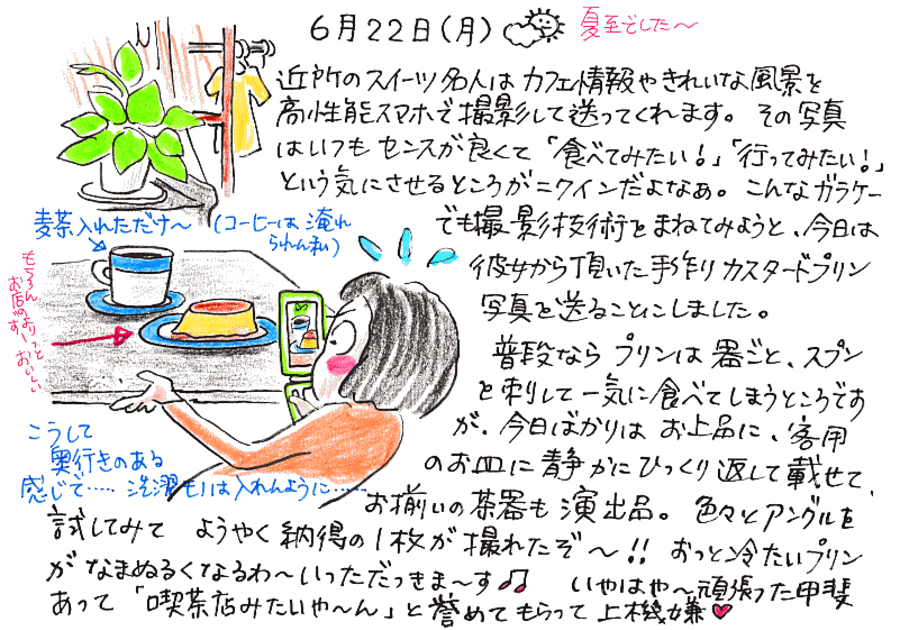 6月22日(月)
夏至でした〜
近所のスイーツ名人はカフェ情報やきれいな風景を
高性能スマホで撮影して送ってくれます。その写真
はいつもセンスが良くて「食べてみたい!」「行ってみたい!」
という気にさせるところがニクインだよなあ。こんなガラケー
でも撮影技術をまねてみようと、今日は
彼女から頂いた手作りカスタードプリン
写真を送ることにしました。
麦茶入れただけ〜
(コーヒーは淹れ
られん私)
もちろん
お店のより
ず〜っと
おいしい
普段ならプリンは器ごと、スプン
を刺して一気に食べてしまうところです
が、今日ばかりはお上品に、客用
のお皿に静かにひっくり返して載せて、
お揃いの茶器も演出品。色々とアングルを
こうして
奥行きのある
感じで…… 洗濯もの は入れんように……
試してみて ようやく納得の1枚が撮れたぞ〜!! おっと冷たいプリン
がなまぬるくなるわ〜いっただっきま〜す♫ いやはや〜頑張った甲斐
あって「喫茶店みたいや〜ん」と誉めてもらって上機嫌♥